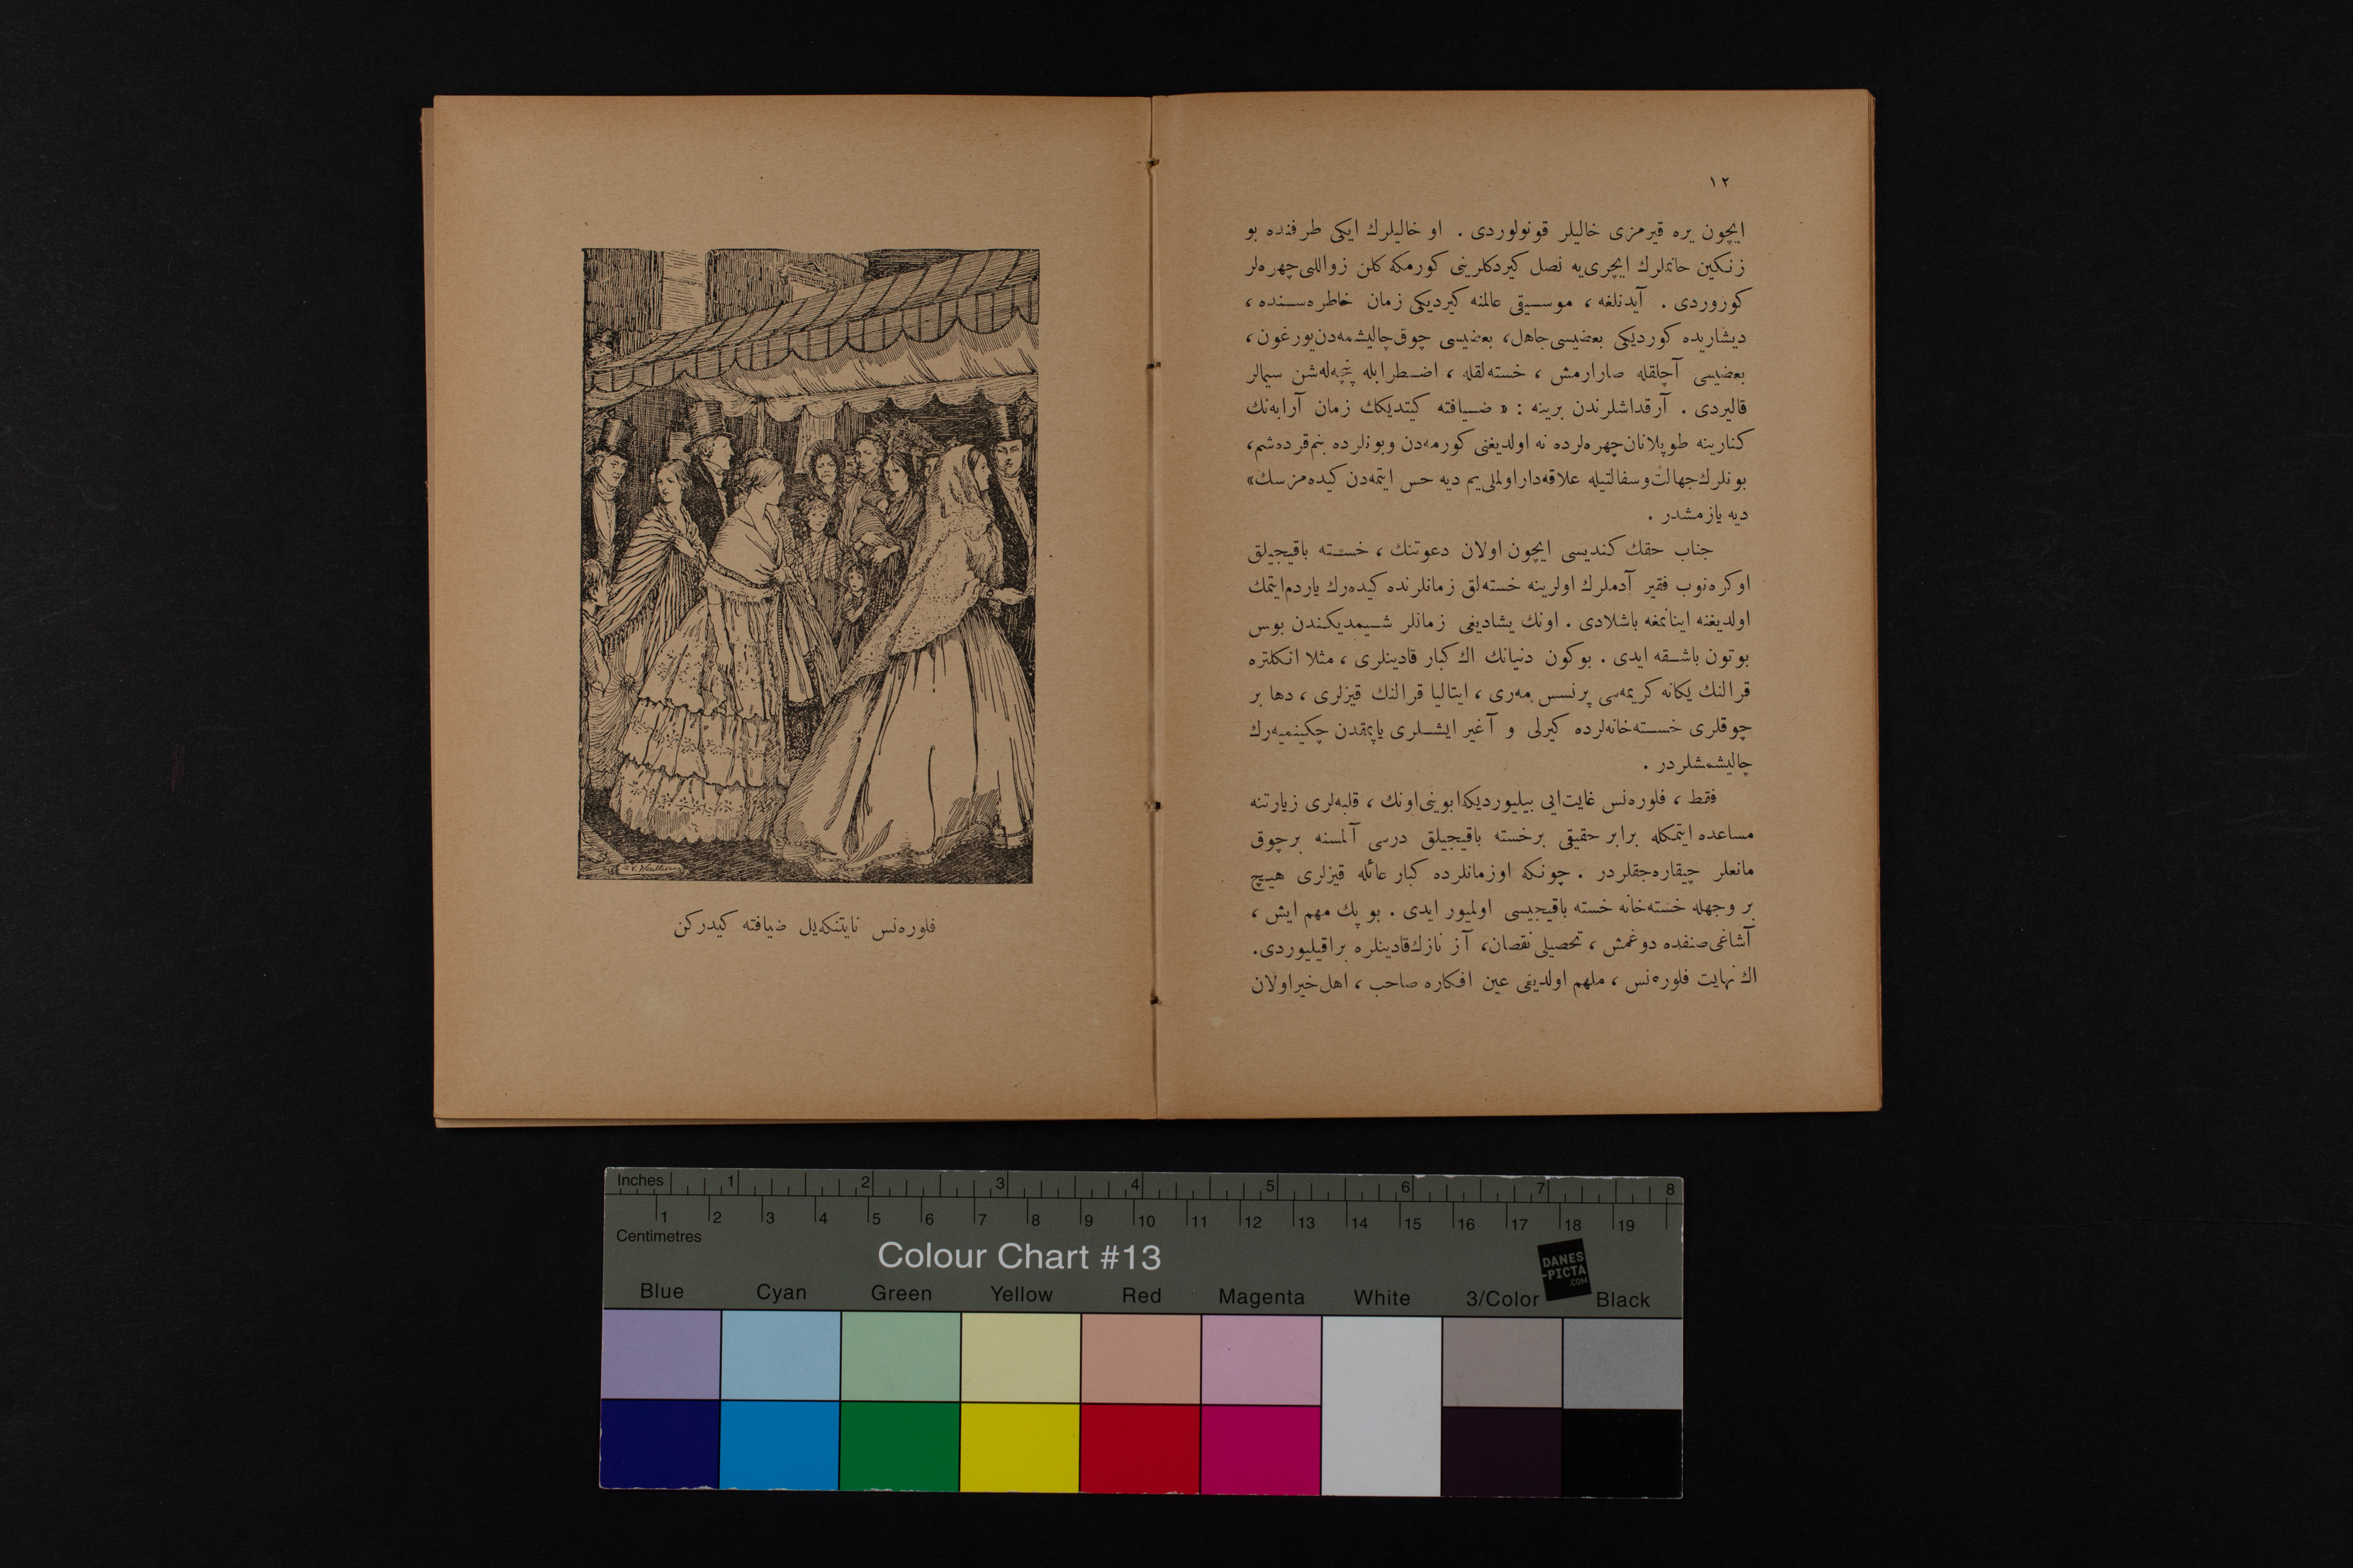 ١٢
ایچون یره قیرمزی خالیلر قونولوردی . او خالیلرك ایكی طرفنده بو
زنكین خانملرك ایچری‌یه نصل كیردكلرینی كورمكه كلن زواللی چهره‌لر
كوروردی . آیدنلغه ، موسیقی عالمنه كیردیكی زمان خاطره‌سنده ،
دیشاریده كوردیكی بعضیسی جاهل، بعضیسی چوق چالیشمه‌دن یورغون،
بعضیسی آچلقله صارارمش ، خسته‌لقله ، اضطرابله پنچه‌له‌شن سیمالر
قالیردی . آرقداشلرندن برینه : « ضیافته كیتدیكك زمان آرابه‌نك
كنارینه طوپلانان چهره‌لرده نه اولدیغنی كورمه‌دن وبونلرده بنم قرده‌شم،
بونلرك جهالت وسفالتیله علاقه‌دار اولملی‌یم دیه حس ایتمه‌دن كیده‌مزسك»
دیه یازمشدر .
جناب حقك كندیسی ایچون اولان دعوتنك ، خسته باقیجیلق
اوكره‌نوب فقیر آدملرك اولرینه خسته‌لق زمانلرنده كیده‌رك یاردم ایتمك
اولدیغنه اینانمغه باشلادی . اونك یشادیغی زمانلر شیمدیكندن بوس
بوتون باشقه ایدی . بوكون دنیانك اك كبار قادینلری ، مثلا انكلتره
قرالنك یكانه كریمه‌سی پرنسس مه‌ری ، ایتالیا قرالنك قیزلری ، دها بر
چوقلری خسته‌خانه‌لرده كیرلی و آغیر ایشلری یاپمقدن چكینمیه‌رك
چالیشمشلردر .
فقط ، فلوره‌نس غایت ایی بیلیوردیكه ابوینی اونك ، قلبه‌لری زیارتنه
مساعده ایتمكله برابر حقیقی برخسته باقیجیلق درسی آلمسنه برچوق
مانعلر چیقاره‌جقلردر . چونكه اوزمانلرده كبار عائله قیزلری هیچ
بر وجهله خسته‌خانه خسته باقیجیسی اولمیور ایدی . بو پك مهم ایش ،
آشاغی صنفده دوغمش ، تحصیلی نقصان، آز نازك قادینلره براقیلیوردی.
اك نهایت فلوره‌نس ، ملهم اولدیغی عین افكاره صاحب ، اهل خیر اولان
فلوره‌نس نایتنكه‌یل ضیافته كیدركن
Inches 1 2 3 4 5 6 7 8
1 2 3 4 5 6 7 8 9 10 11 12 13 14 15 16 17 18 19
Centimetres
Colour Chart #13
DANES
-PICTA
.COM
Blue Cyan Green Yellow Red Magenta White 3/Color Black